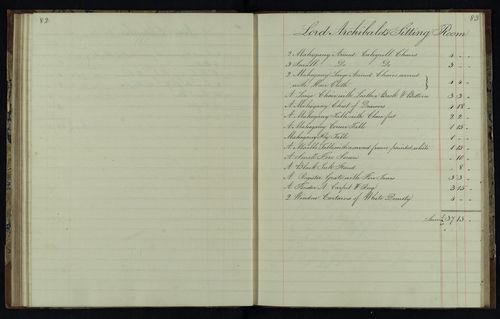 82
83
Lord Archibalds Sitting Room
2 Mahogany Armed Chairs 4 " "
3 Small Do Do 3 " "
2 Mahogany Large Armed Chairs covered
with Hair Cloth 4 4 "
A Large Chair with Leather Back & Bottom 3 3 "
A Mahogany Chest of Drawers 4 18 "
A Mahogany Table with Claw feet 2 2 "
A Mahogany Corner Table 1 15 "
Mahogany Fly Table 1 " "
A Marble Table with a wood frame painted white 1 15 "
A Small Fire Screen " 10 "
A Black Ink Stand " 8 "
A Register Grate with Fire Irons 3 3 "
A Fender A Carpet & Rug 3 15 "
2 Window Curtains of White Dimity 4 " "
37 13 "